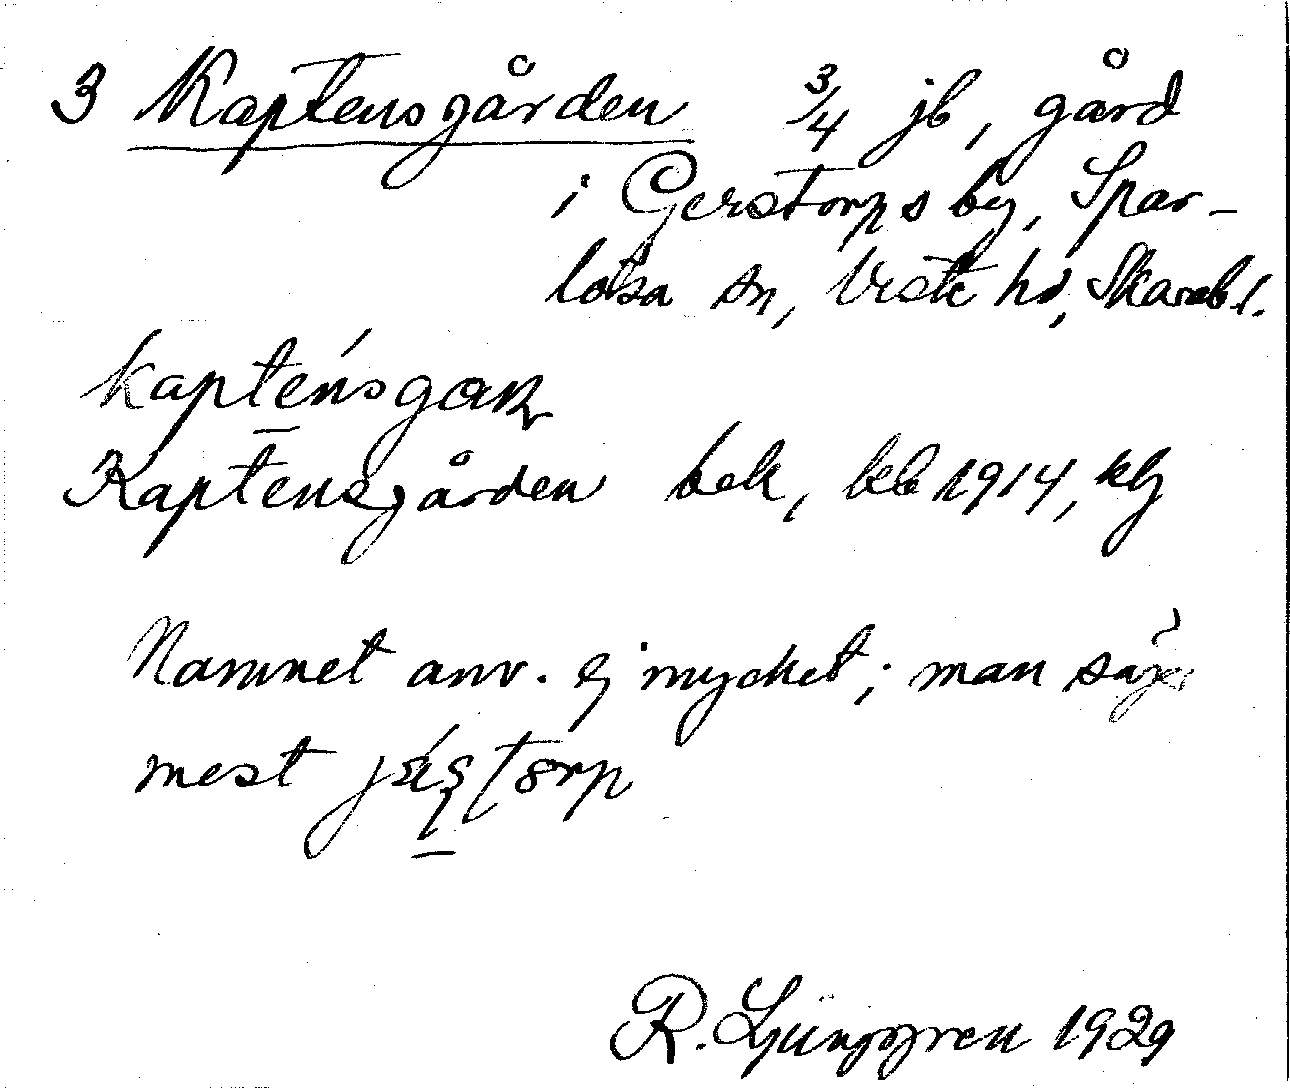 3 Kaptensgården 3/4 jb, gård
i Gerstorps by, Spar-
lösa sn, Viste hd, Skarab. l.
kaptensgaṇ
Kaptensgården bek, kb 1914, klj
Namnet anv. ej mycket; man säger
mest
R. Ljunggren 1929